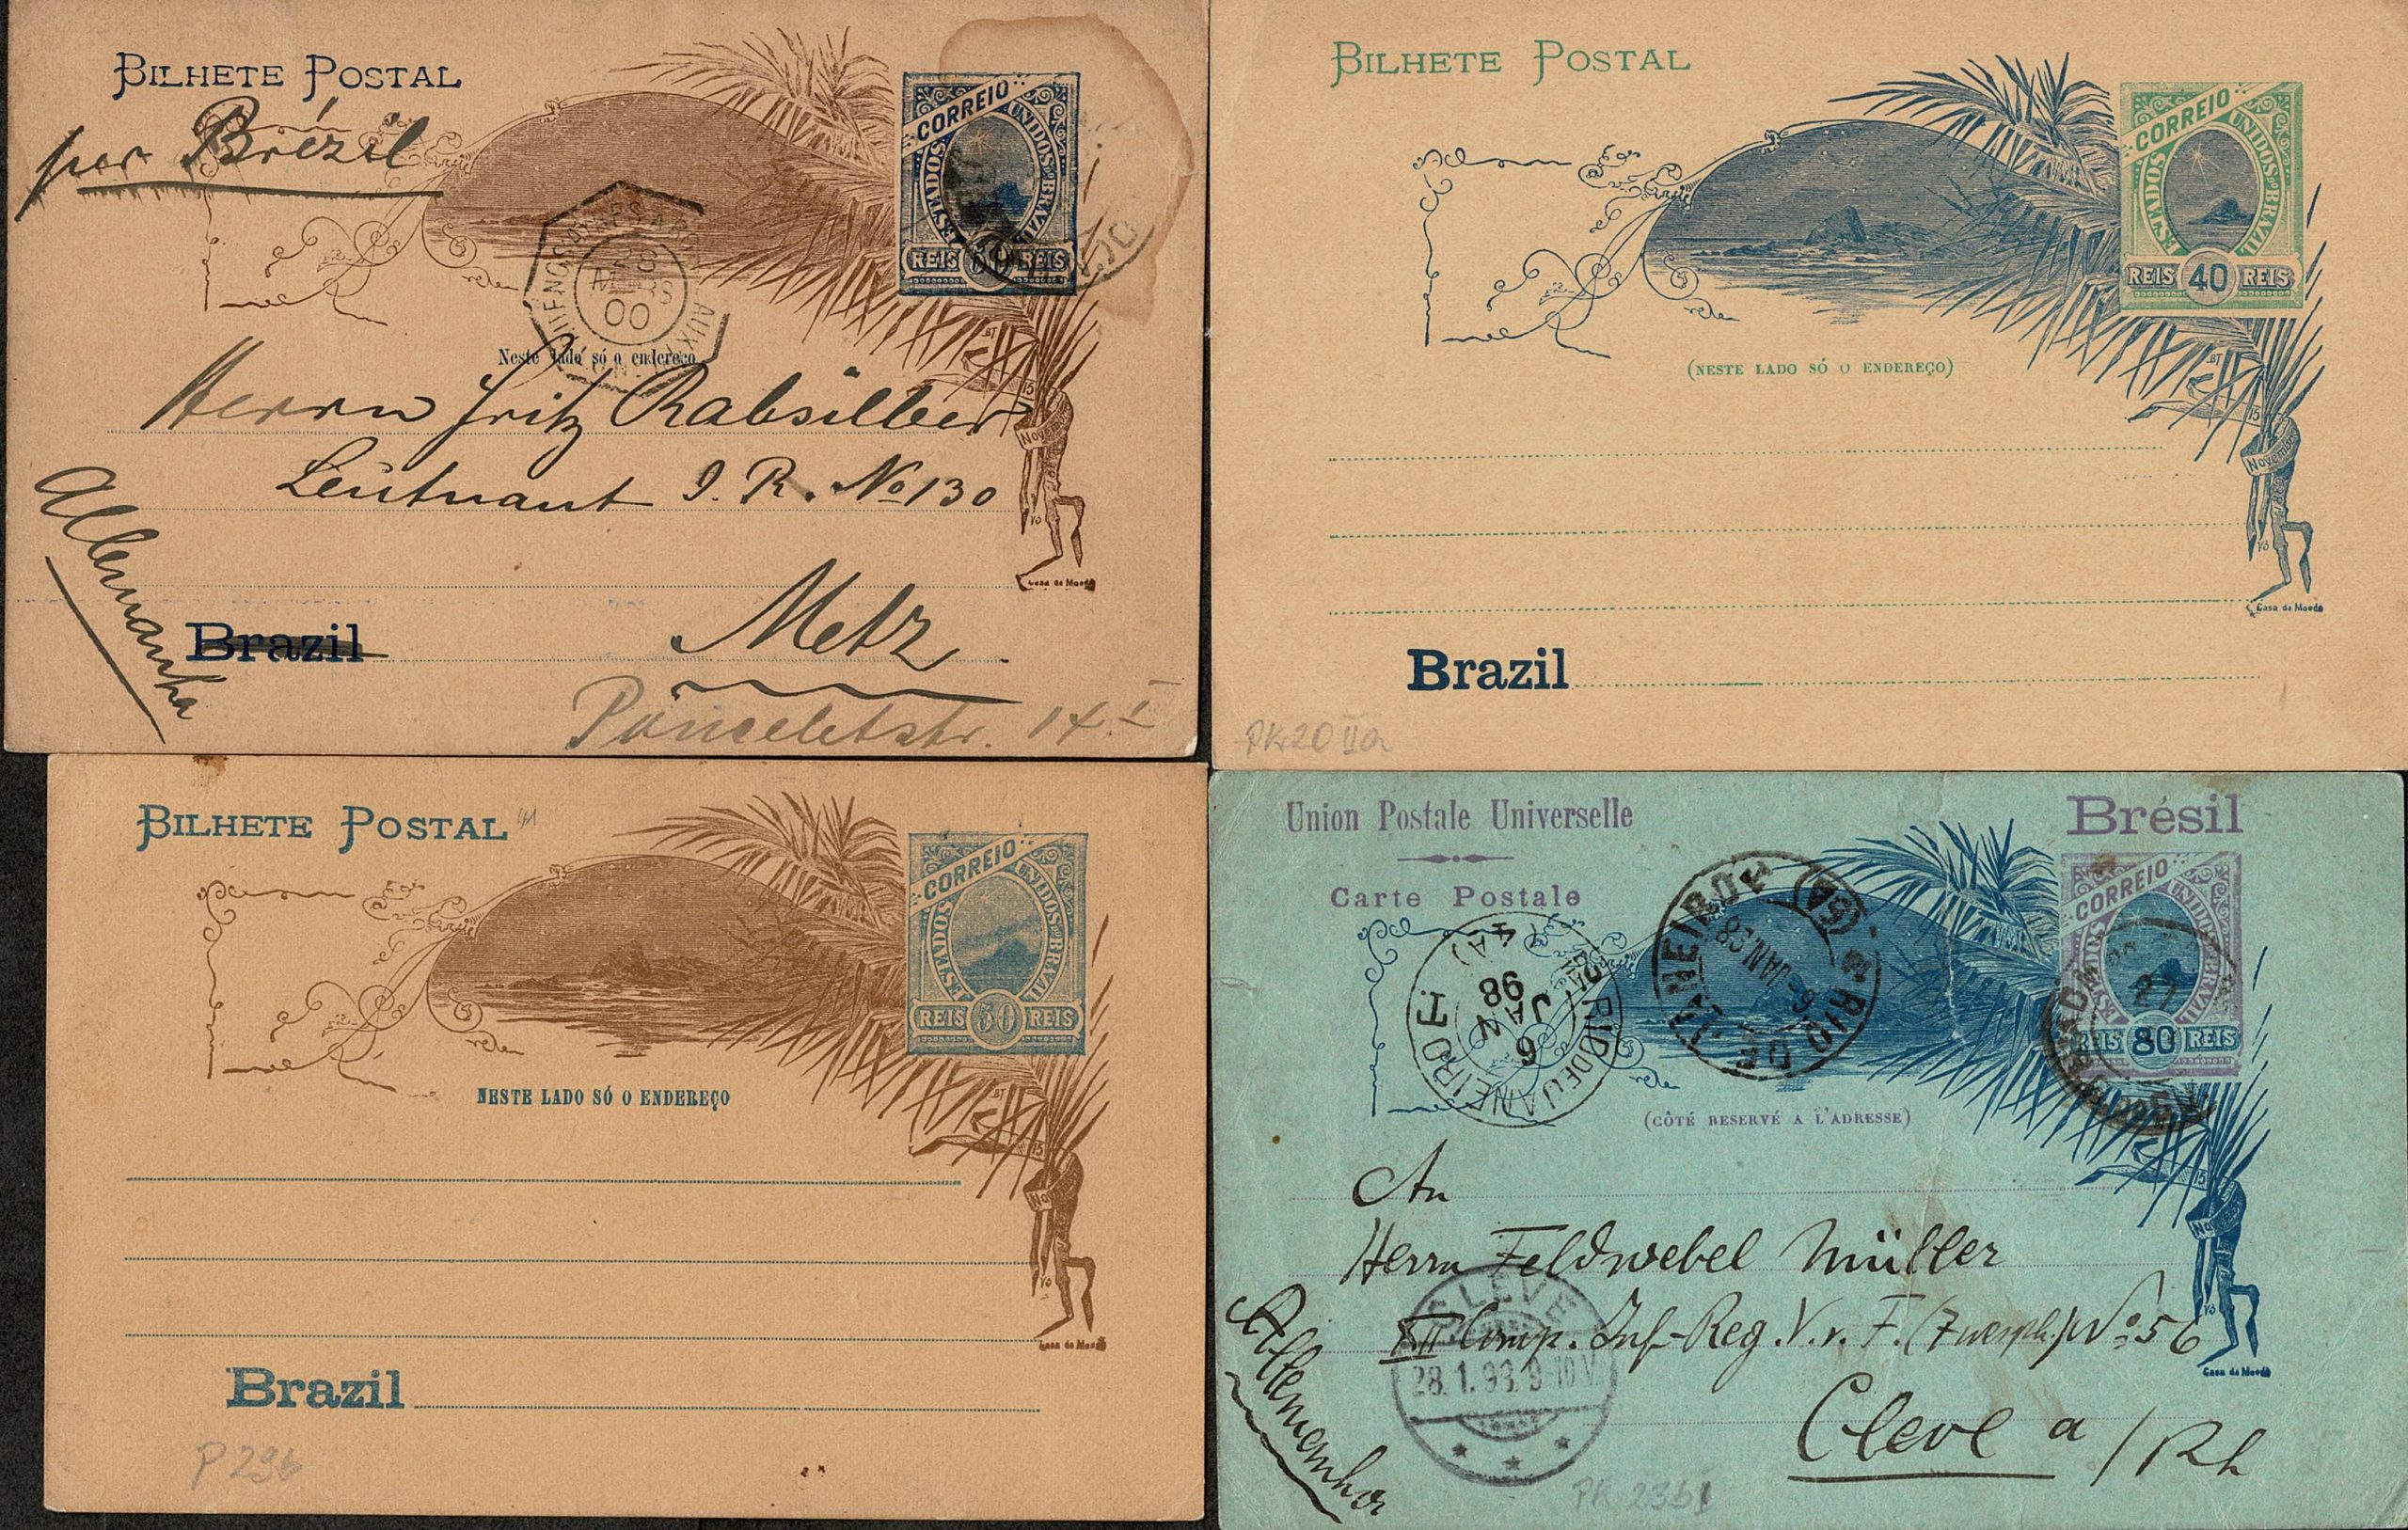 BILHETE POSTAL
per Brézil
CORREIO
ESTADOS UNIDOS DO BRAZIL
REIS REIS
BUENOS AYRES
28
MARS
00
Neste lado só o endereço
15
Novembro
Herrn Fritz Rabsilber
Leutnant I. R. No 130
Allemanha
Casa da Moeda
Metz
Brazil
Ponceletstr. 14 I
BILHETE POSTAL
CORREIO
ESTADOS UNIDOS DO BRAZIL
REIS 40 REIS
(NESTE LADO SÓ O ENDEREÇO)
15
Novembro
Casa da Moeda
Brazil
PK20 IIa
BILHETE POSTAL
CORREIO
ESTADOS UNIDOS DO BRAZIL
REIS 50 REIS
NESTE LADO SÓ O ENDEREÇO
15
Casa da Moeda
Brazil
P 29b
Union Postale Universelle
Brésil
Carte Postale
CORREIO
ESTADOS UNIDOS DO BRAZIL
REIS 80 REIS
RIO DE JANEIRO
6 JAN 98
RIO DE JANEIRO
6-JAN.98
27
(CÔTÉ RESERVÉ A L'ADRESSE)
15
An
Herrn Feldwebel Müller
XII Comp. Inf-Reg. V. v. F. No 56
CLEVE
28.1.98.9-10V
Cleve a/Rh
Allemanha
Casa da Moeda
PK 23bI